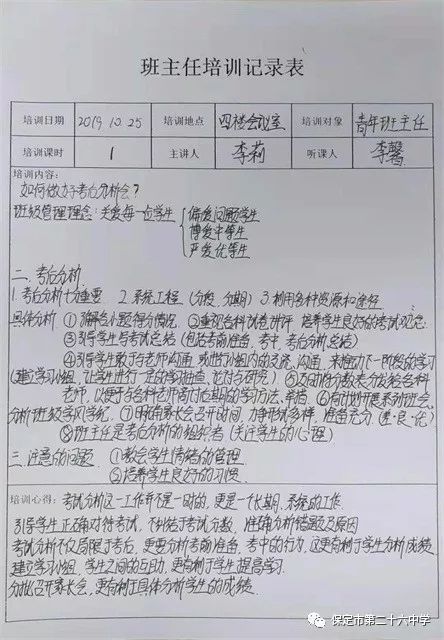 班主任培训记录表
培训日期 2019.10.25 培训地点 四楼会议室 培训对象 青年班主任
培训课时 1 主讲人 李莉 听课人 李馨
培训内容:
如何做好考后分析会?
班级管理理念:关爱每一位学生 { 偏爱问题学生
博爱中等生
严爱优等生
二、考后分析
1.考后分析十分重要 2.系统工程(分段、分期) 3.利用各种资源和途径
具体分析 ①了解各小题得分情况 ②重视各科试卷讲评 培养学生良好的考试观念
③引导学生写考试总结(包括考前准备、考中、考后总结)
④引导学生敢于老师沟通,或进行小组内的交流、沟通,来推动下一阶段的学习
(建立学习小组,让学生进行一定的学习抽查、讨论与研究) ⑤及时把分数表分发给各科
老师,以便于各科老师商讨后期的学习方法、举措 ⑥有计划开展系列班会
分析班级学风学纪 ⑦明确家长会召开时间,力争形式多样,准备充分(进·良·优)
⑧班主任是考后分析的组织者(关注学生的心理)
三、注意的问题 ①教会学生情绪的管理
②培养学生良好的习惯
培训心得:考试分析这一工作并不是一时的,更是一个长期、系统的工作
引导学生正确对待考试,不纠结于考试分数,准确分析错题及原因
考试分析不仅局限于考后,更要分析考前准备、考中的行为,这更有利于学生分析成绩
建立学习小组,学生之间的互助,更有利于学生提高学习.
分批召开家长会,更有利于具体分析学生的成绩.
保定市第二十六中学